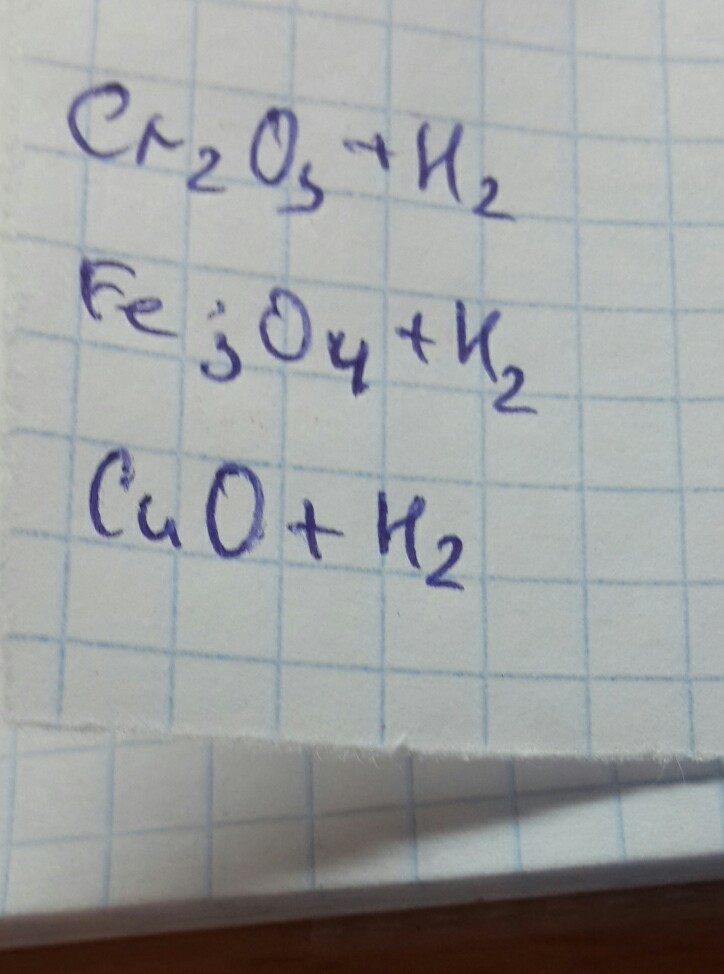 Cr₂O₃ + H₂
Fe₃O₄ + H₂
CuO + H₂